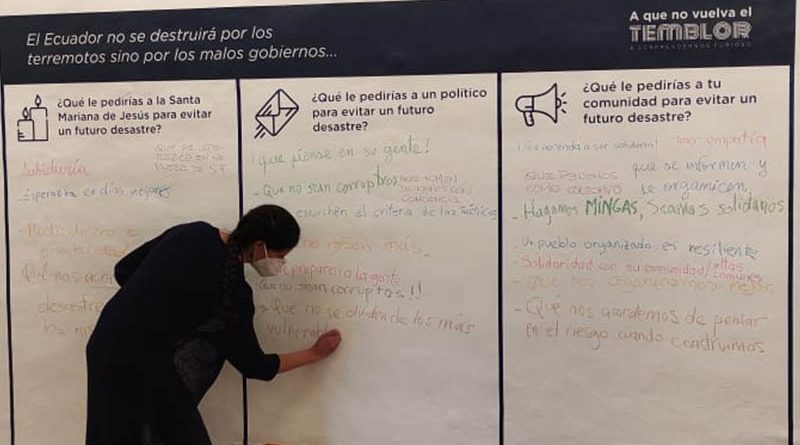 El Ecuador no se destruirá por los
terremotos sino por los malos gobiernos...
A que no vuelva el
TEMBLOR
A SORPRENDERNOS FURIOSO
¿Qué le pedirías a la Santa
Mariana de Jesús para evitar
un futuro desastre?
Sabiduría
QUE
EN LA
PLAZA DE S.F.
- Esperanza en días mejores
- Mucho dinero
Que nos
desastre
los
¿Qué le pedirías a un político
para evitar un futuro
desastre?
¡que piense en su gente!
- Que no sean corruptos
QUE TOMEN
DECISIONES CON
CONCIENCIA
escuchen el criterio de los técnicos
no roben más.
preparen a la gente
Que no sean corruptos!!
- Que no se olviden de los más
vulnerabl
¿Qué le pedirías a tu
comunidad para evitar un
futuro desastre?
aprenda a ser solidario!
Ser empatía
que se informen y
QUE PENSEMOS
COMO COLECTIVO
se organicen.
- Hagamos MINGAS, Seamos solidarios
- Un pueblo organizado es resiliente
- Solidaridad con su comunidad/ ollas
comunes
- Que nos organicemos mejor
- Qué nos acordemos de pensar
en el riesgo cuando construimos